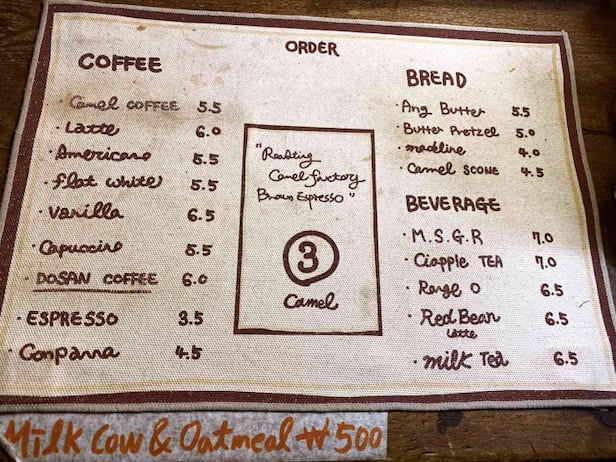 ORDER
COFFEE
· Camel COFFEE 5.5
· Latte 6.0
· Americano 5.5
· flat white 5.5
· Vanilla 6.5
· Capuccino 5.5
· DOSAN COFFEE 6.0
· ESPRESSO 3.5
· Conpanna 4.5
"Roasting
Camel factory
Brown Espresso"
3
Camel
BREAD
· Ang Butter 5.5
· Butter Pretzel 5.0
· madeline 4.0
· Camel SCONE 4.5
BEVERAGE
· M.S.G.R 7.0
· Ciapple TEA 7.0
· Range O 6.5
· Red Bean 6.5
Latte
· milk Tea 6.5
Milk Cow & Oatmeal ₩500